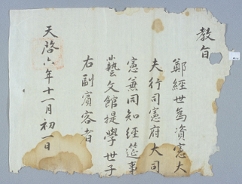 敎旨
鄭經世爲資憲大
夫行司憲府大司
憲兼同知經筵事
藝文館提學世子
右副賓客者
天啓六年十一月初 日